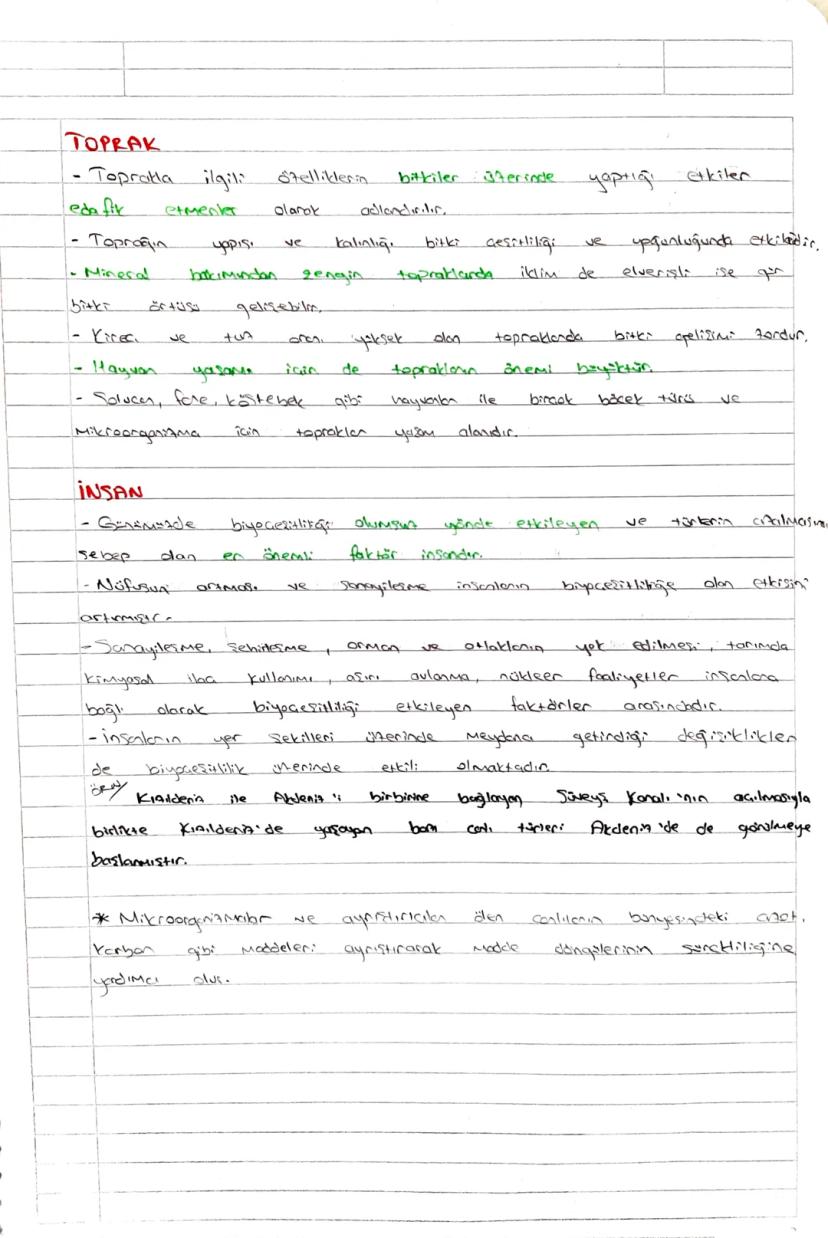 TOPRAK
- Toprakla ilgili özelliklerin bitkiler üzerinde yaptığı etkiler
edafik etmenler olarak adlandırılır.
- Toprağın yapısı ve kalınlığı bitki çeşitliliği ve yoğunluğunda etkilidir.
- Mineral bakımından zengin topraklarda iklim de elverişli ise gür
bitki örtüsü gelişebilir.
- Kireç ve tuz oranı yüksek olan topraklarda bitki gelişimi zordur.
- Hayvan yaşamı için de toprakların önemi büyüktür.
- Solucan, fare, köstebek gibi hayvanlar ile birçok böcek türü ve
mikroorganizma için topraklar yaşam alanıdır.
İNSAN
- Günümüzde biyoçeşitliliği olumsuz yönde etkileyen ve türlerin azalmasına
sebep olan en önemli faktör insandır.
- Nüfusun artması ve sanayileşme insanların biyoçeşitliliğe olan etkisini
artırmıştır.
- Sanayileşme, şehirleşme, orman ve otlakların yok edilmesi, tarımda
kimyasal ilaç kullanımı, aşırı avlanma, nükleer faaliyetler insanlara
bağlı olarak biyoçeşitliliği etkileyen faktörler arasındadır.
- İnsanların yer şekilleri üzerinde meydana getirdiği değişiklikler
de biyoçeşitlilik üzerinde etkili olmaktadır.
ÖRN/ Kızıldeniz ile Akdeniz'i birbirine bağlayan Süveyş Kanalı'nın açılmasıyla
birlikte Kızıldeniz'de yaşayan bazı canlı türleri Akdeniz'de de görülmeye
başlanmıştır.
* Mikroorganizmalar ve ayrıştırıcılar ölen canlıların bünyesindeki azot,
karbon gibi maddeleri ayrıştırarak madde döngülerinin sürekliliğine
yardımcı olur.